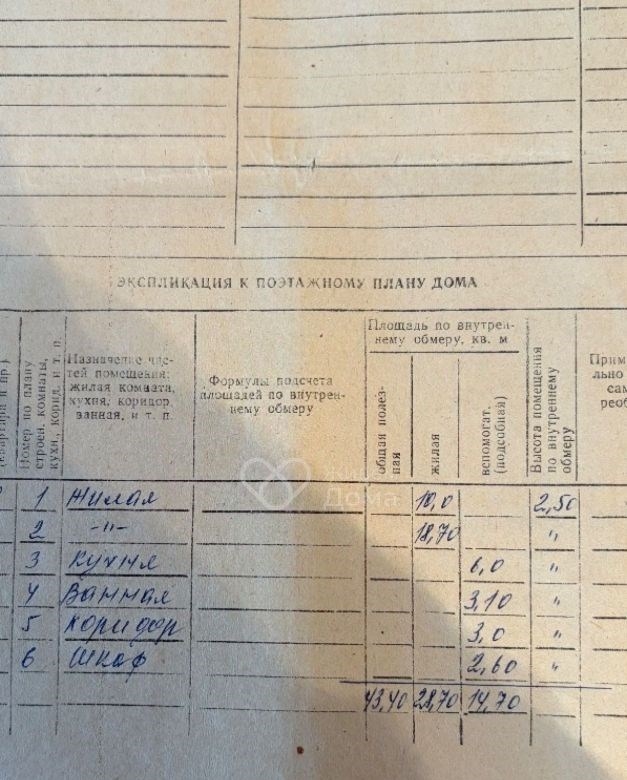 ЭКСПЛИКАЦИЯ К ПОЭТАЖНОМУ ПЛАНУ ДОМА
Номер по плану строен. комнаты, кухн., корид. и т. п.
Назначение час-
тей помещения:
жилая комната,
кухня, коридор
ванная, и т. п.
Формулы подсчета
площадей по внутрен-
нему обмеру
Площадь по внутрен-
нему обмеру, кв. м
общая полез-
ная
жилая
вспомогат.
(подсобная)
Высота помещения
по внутреннему
обмеру
Прим
льно
сам
реоб
1 Жилая 10,0 2,50
2 -"- 18,70 "
3 Кухня 6,0 "
4 Ванная 3,10 "
5 Коридор 3,0 "
6 Шкаф 2,60 "
43,40 28,70 14,70
Дома